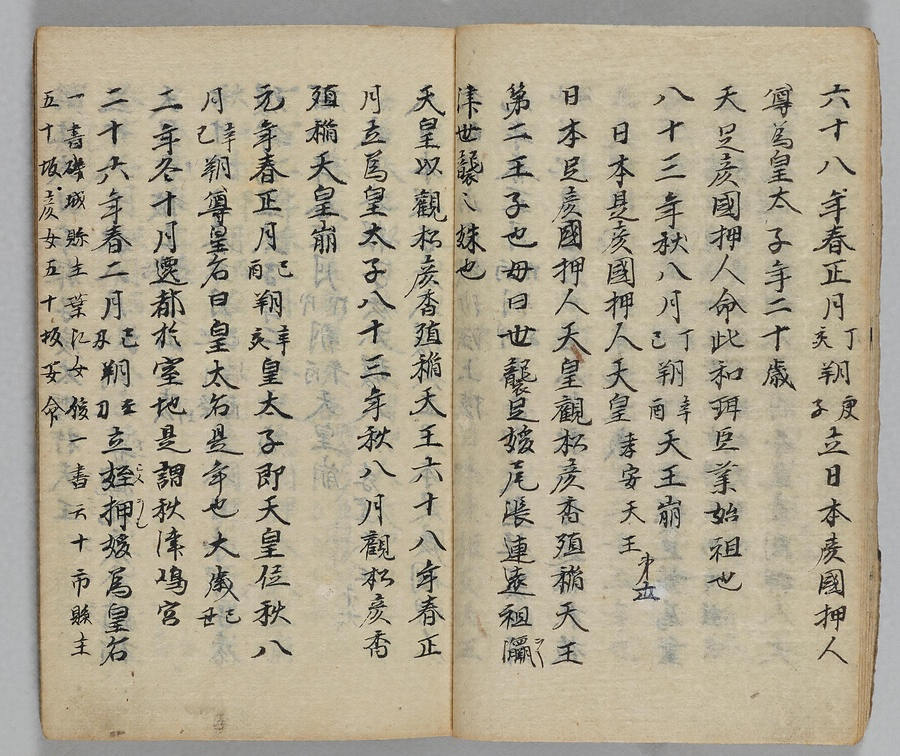 六十八年春正月丁亥朔庚子立日本彦國押人
尊爲皇太子年二十歳
天足彦國押人命此和珥臣業始祖也
八十三年秋八月丁己朔辛酉天王崩
日本足彦國押人天皇孝安天王
日本足彦國押人天皇觀松彦香殖稲天王
第二王子也母曰世襲足媛尾張連遠祖瀛
津世襲之妹也
天皇以觀松彦香殖稲天王六十八年春正
月立爲皇太子八十三年秋八月觀松彦香
殖稲天皇崩
元年春正月己酉朔辛亥皇太子即天皇位秋八
月辛己朔尊皇后曰皇太后是年也大歳己丑
二年冬十月遷都於室地是謂秋津嶋宮
二十六年春二月己丑朔壬刀立姪押媛爲皇后
一書磯城縣主葉江女 一書云十市縣主
五十坂彦女五十坂 命